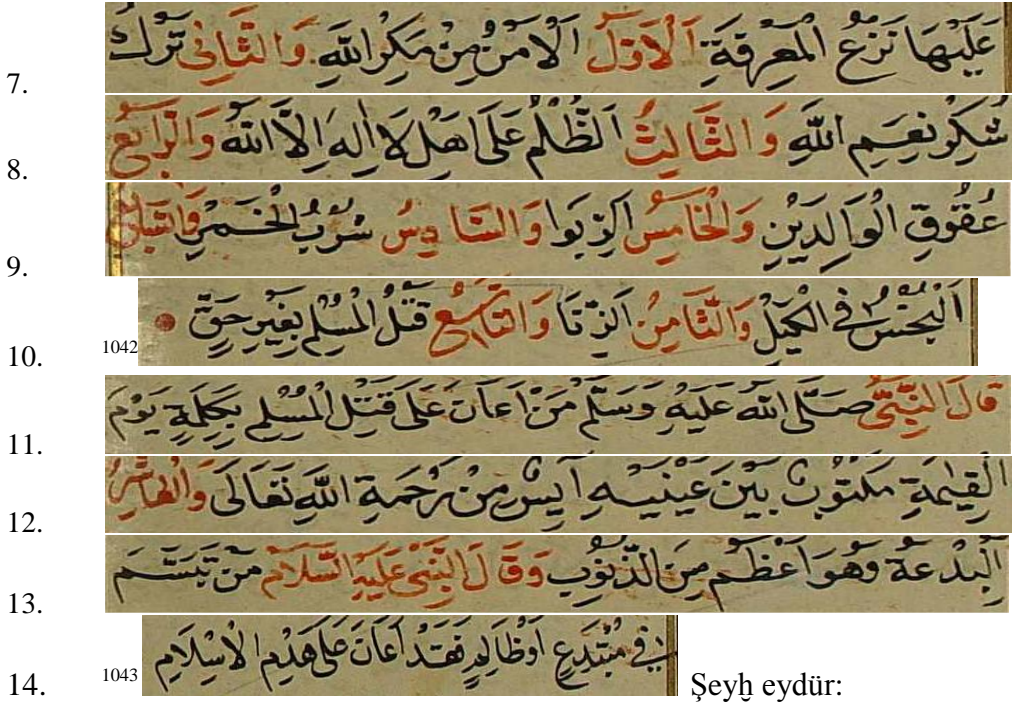 7. عَلَيْهَا نَزْعُ الْمَعْرِفَةِ اَلْاَوَّلُ اَلْاَمْنُ مِنْ مَكْرِ اللّٰهِ وَالثَّانِي تَرْكُ
8. شُكْرِ نِعَمِ اللّٰهِ وَالثَّالِثُ اَلظُّلْمُ عَلَى اَهْلِ لَا اِلٰهَ اِلَّا اللّٰهُ وَالرَّابِعُ
9. عُقُوقِ الْوَالِدَيْنِ وَالْخَامِسُ اَلرِّبٰوا وَالسَّادِسُ شُرْبُ الْخَمْرِ وَالسَّابِعُ
10. اَلْبَخْسُ فِي الْكَيْلِ وَالثَّامِنُ اَلزِّنَا وَالتَّاسِعُ قَتْلُ الْمُسْلِمِ بِغَيْرِ حَقٍّ 1042
11. قَالَ النَّبِيُّ صَلَّى اللّٰهُ عَلَيْهِ وَسَلَّمَ مَنْ اَعَانَ عَلَى قَتْلِ الْمُسْلِمِ بِكَلِمَةٍ يَوْمَ
12. الْقِيٰمَةِ مَكْتُوبٌ بَيْنَ عَيْنَيْهِ اٰيِسٌ مِنْ رَحْمَةِ اللّٰهِ تَعَالَى وَالْعَاشِرُ
13. اَلْبِدْعَةُ وَهُوَ اَعْظَمُ مِنَ الذُّنُوبِ وَقَالَ النَّبِيُّ عَلَيْهِ السَّلَامُ مَنْ تَبَسَّمَ
14. فِي مُبْتَدِعٍ اَوْ ظَالِمٍ فَقَدْ اَعَانَ عَلَى هَدْمِ الْاِسْلَامِ 1043 Şeyḫ eydür: